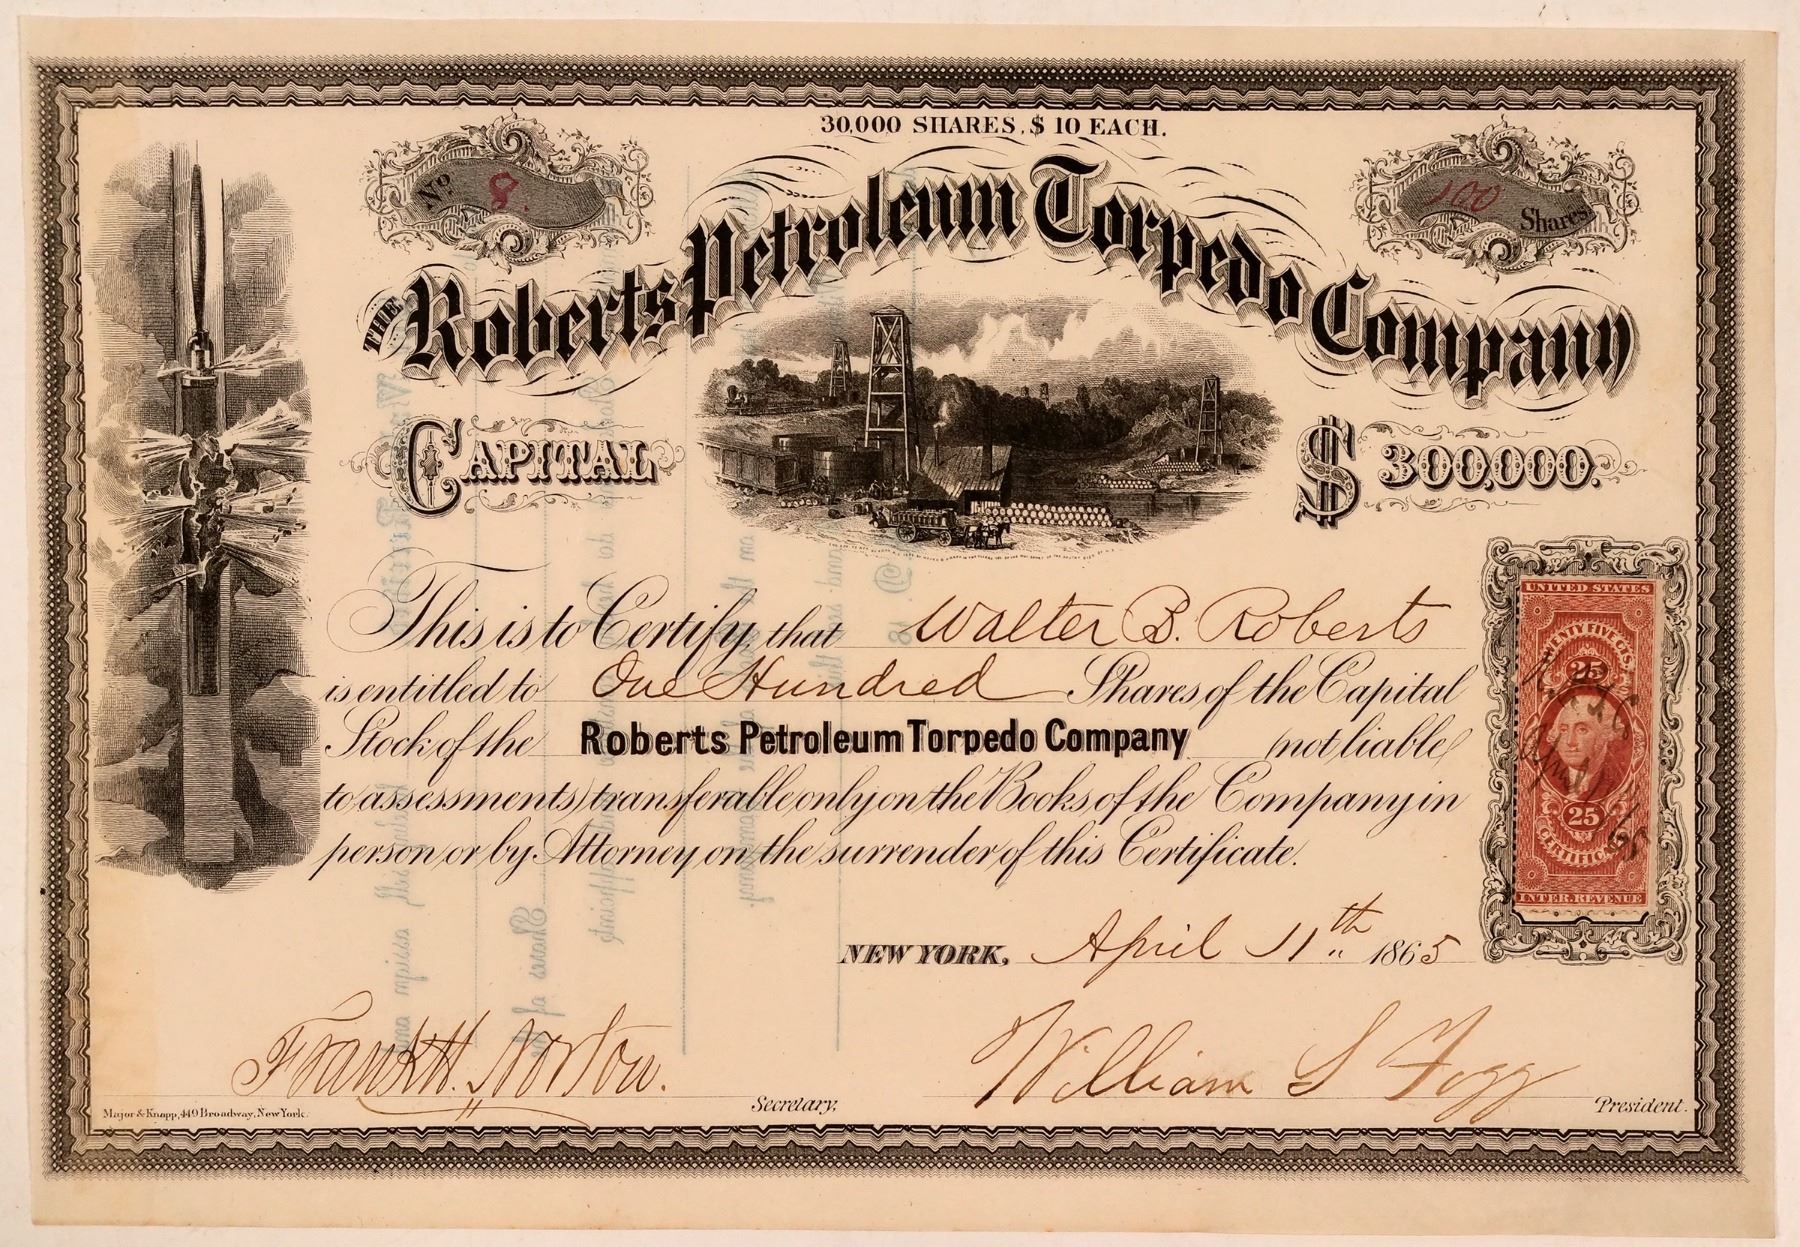 30,000 SHARES, $ 10 EACH.
No. 8.
100 Shares
THE Roberts Petroleum Torpedo Company
CAPITAL $ 300,000.
This is to Certify, that Walter B. Roberts
is entitled to One Hundred Shares of the Capital
Stock of the Roberts Petroleum Torpedo Company (not liable
to assessments) transferable only on the Books of the Company in
person or by Attorney on the surrender of this Certificate.
UNITED STATES
TWENTY FIVE CTS.
25
25
CERTIFICATE
INTER. REVENUE
NEW YORK, April 11th 1865
Frank H. Norton. Secretary.
William S Fogg President.
Major & Knapp, 449 Broadway, New York.